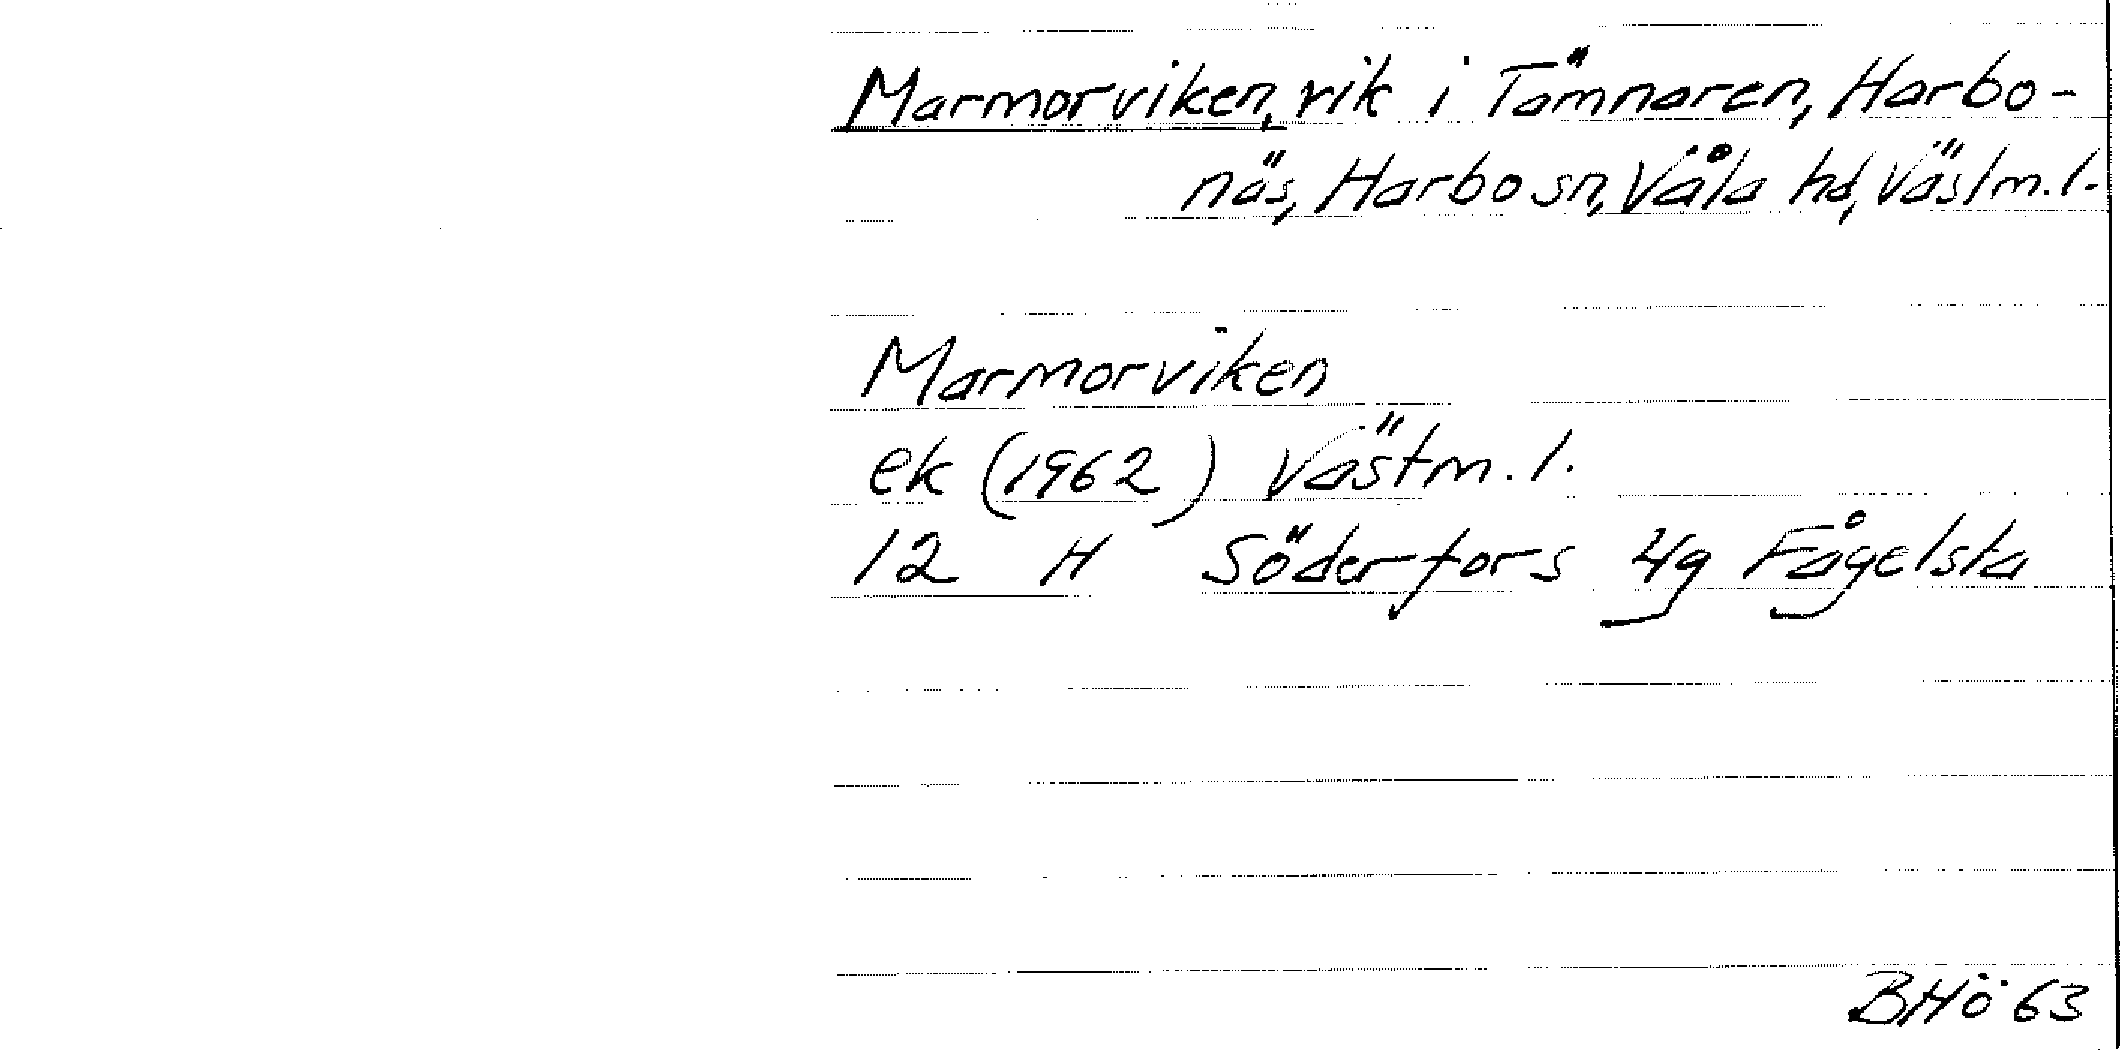 Marmorviken, vik i Tämnaren, Harbo-
näs, Harbo sn, Våla hd, Västm. l.
Marmorviken
ek (1962) Västm. l.
12 H Söderfors 4g Fågelsta
BHö 63